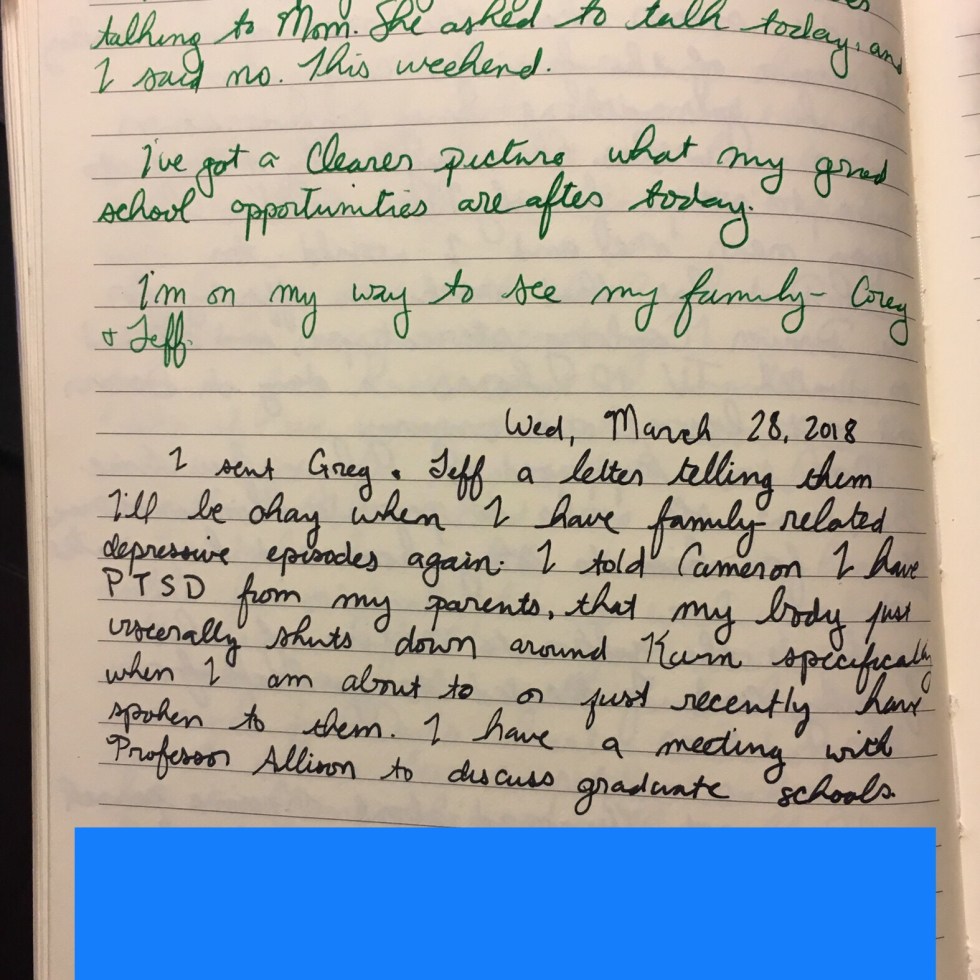 talking to Mom. She asked to talk today, and
I said no. This weekend.
I've got a clearer picture what my grad
school opportunities are after today.
I'm on my way to see my family- Corey
+ Jeff.
Wed, March 28, 2018
I sent Greg + Jeff a letter telling them
I'll be okay when I have family-related
depressive episodes again. I told Cameron I have
PTSD from my parents, that my body just
viscerally shuts down around specifically
when I am about to or just recently have
spoken to them. I have a meeting with
Professor Allison to discuss graduate schools.